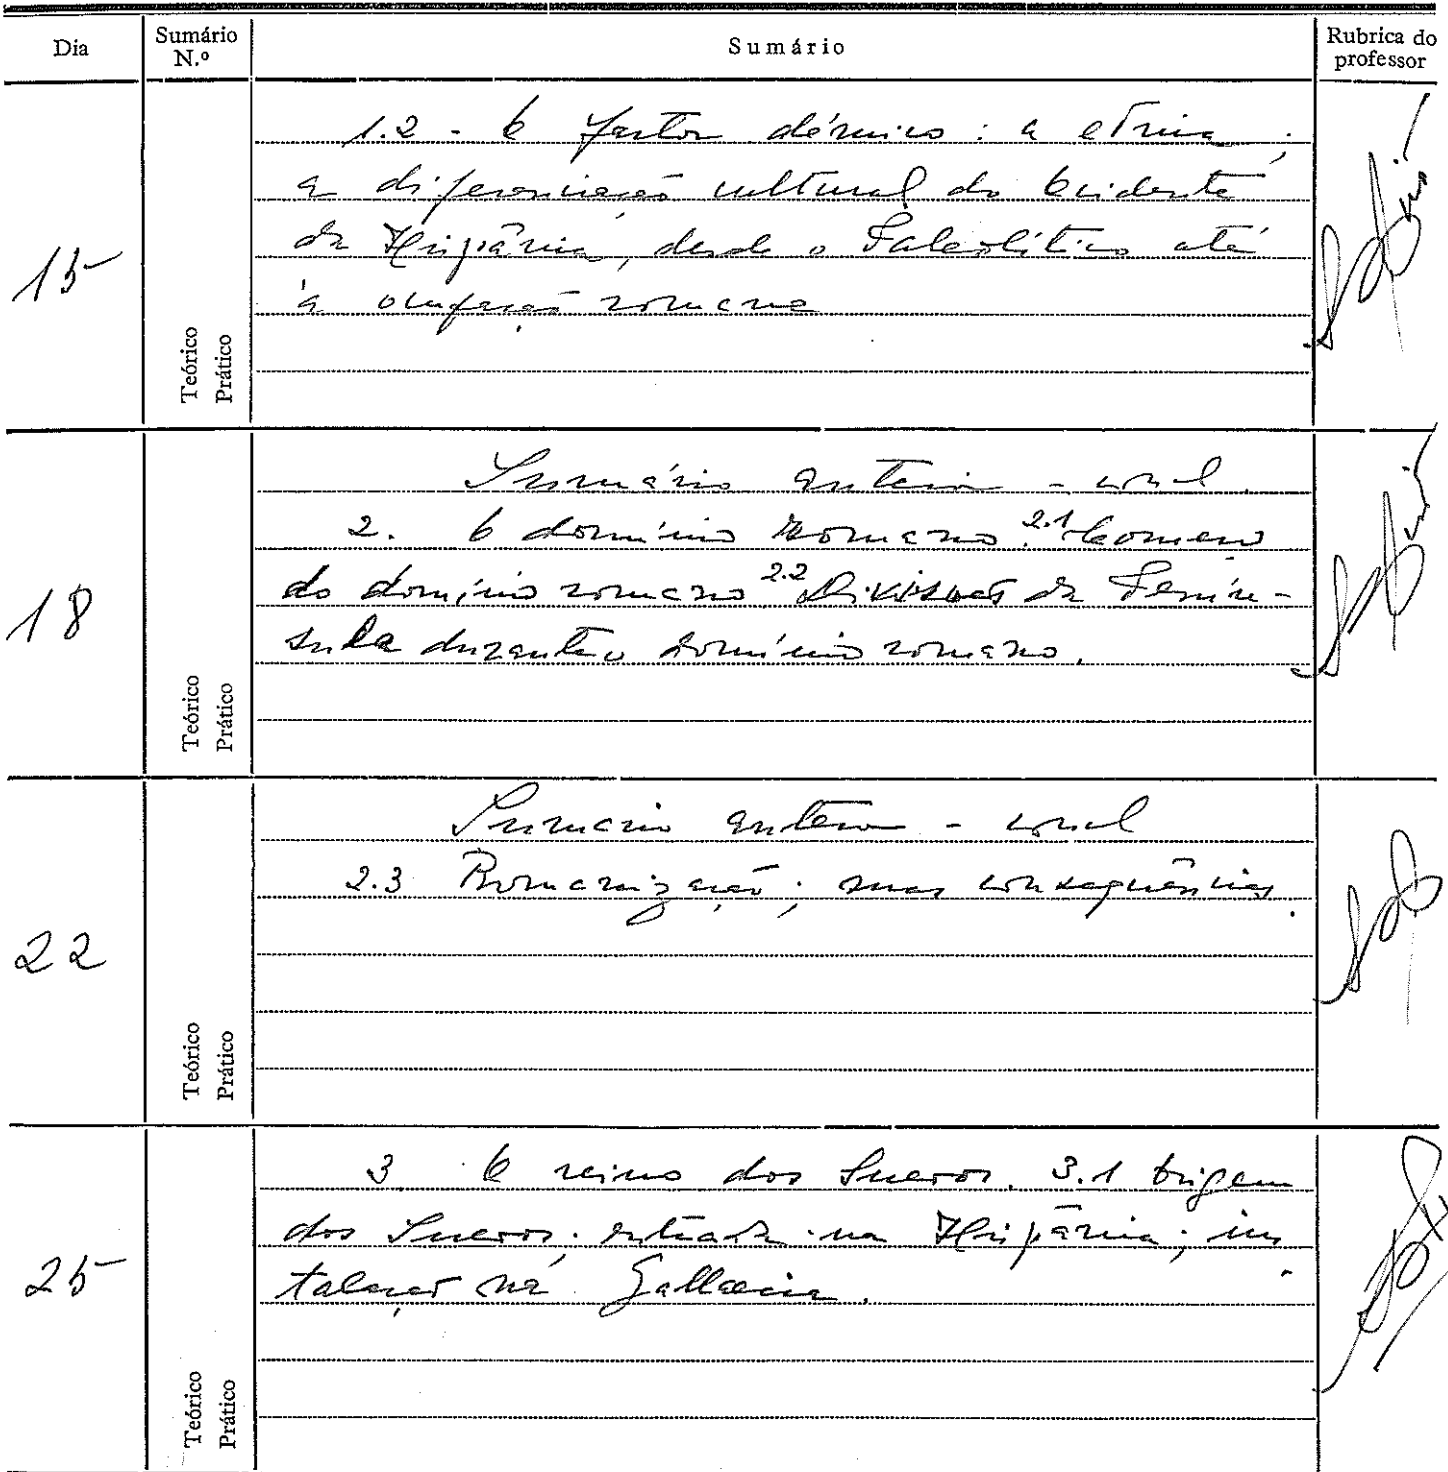 Dia
Sumário N.º
Sumário
Rubrica do professor
15
Teórico
Prático
1.2 - O factor démico: a etnia;
a diferenciação cultural do Ocidente
da Hispânia, desde o Paleolítico até
à ocupação romana
18
Teórico
Prático
Sumário anterior - oral.
2. O domínio Romano. 2.1 Começo
do domínio romano 2.2 Divisões da Penín-
sula durante o domínio romano.
22
Teórico
Prático
Sumário anterior - oral
2.3 Romanização; suas consequências.
25
Teórico
Prático
3 O reino dos Suevos. 3.1 Origem
dos Suevos; entrada na Hispânia; ins
talação na Gallaecia.